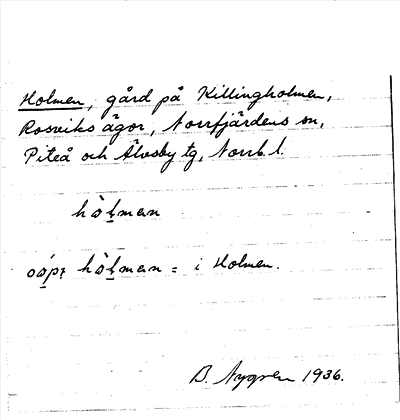 Holmen, gård på Killingholmen,
Rosviks ägor, Norrfjärdens sn,
Piteå och Älvsby tg, Norrb. l.
hòḷman
hòḷman = i Holmen.
B. Nygren 1936.